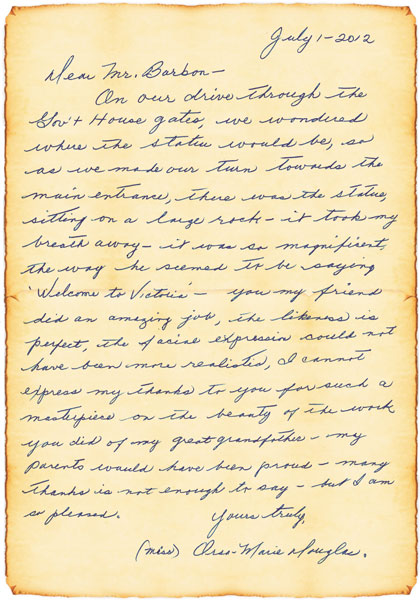 July 1-2012
Dear Mr. Barbon-
On our drive through the
Gov't House gates, we wondered
where the statue would be, so
as we made our turn towards the
main entrance, there was the statue,
sitting on a large rock - it took my
breath away - it was so magnificent,
the way he seemed to be saying
'Welcome to Victoria' - you my friend
did an amazing job, the likeness is
perfect, the facial expression could not
have been more realistic, I cannot
express my thanks to you for such a
masterpiece on the beauty of the work
you did of my great grandfather - my
parents would have been proud - many
thanks is not enough to say - but I am
so pleased.
Yours truly,
(miss) -Marie Douglas.